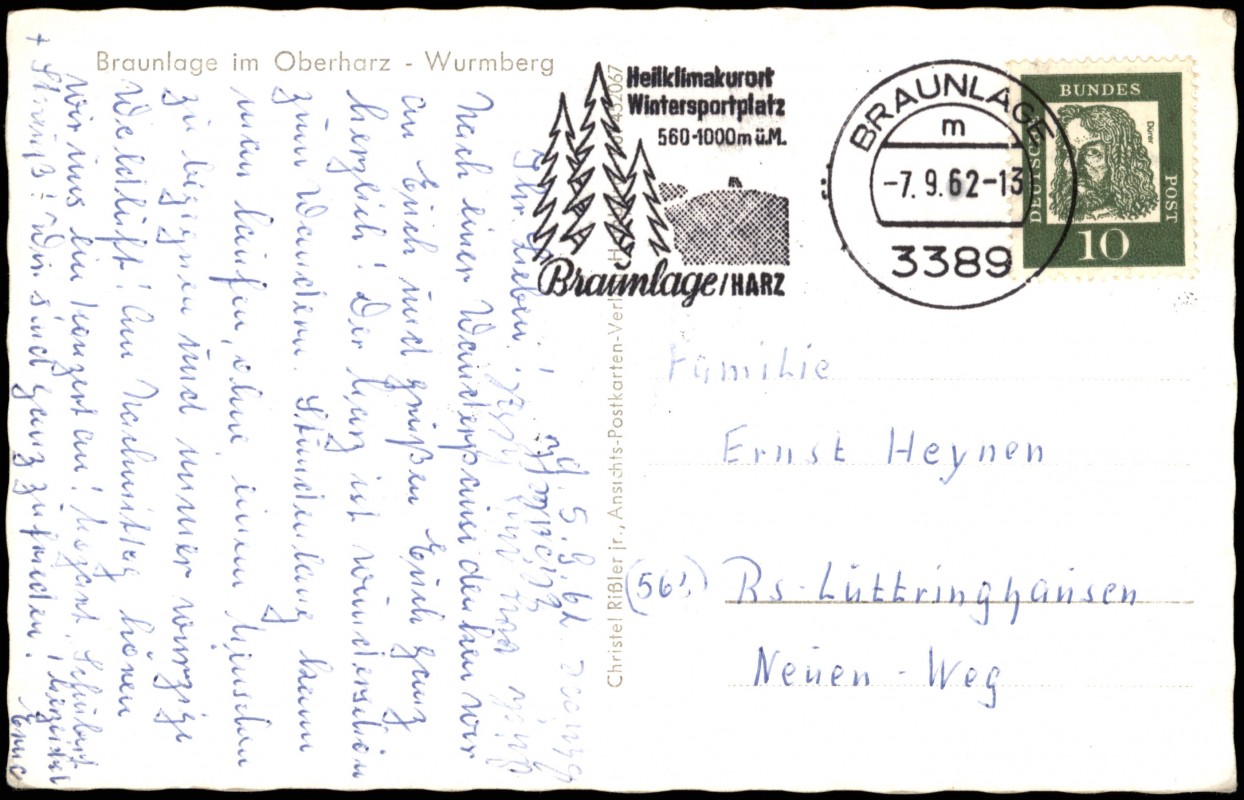 Braunlage im Oberharz - Wurmberg
Heilklimakurort
Wintersportplatz
560-1000m ü.M.
Braunlage/HARZ
BRAUNLAGE
m
-7.9.62-13
3389
DEUTSCHE
BUNDES
POST
Dürer
10
Christel Rißler jr., Ansichts-Postkarten-Verl
5.9.62.
Ihr Lieben!
Nach einer Wanderpause denken wir
an Euch und grüßen Euch ganz
herzlich! Der Harz ist wunderschön
zum Wandern. Stundenlang kann
man laufen, ohne einem Menschen
zu begegnen und immer würzige
Waldluft! Am Nachmittag hören
wir uns ein Konzert an! Mozart, Schubert
+ Strauß! Wir sind ganz zufrieden!
Familie
Ernst Heynen
(56!) Rs-Lüttringhausen
Neuen-Weg